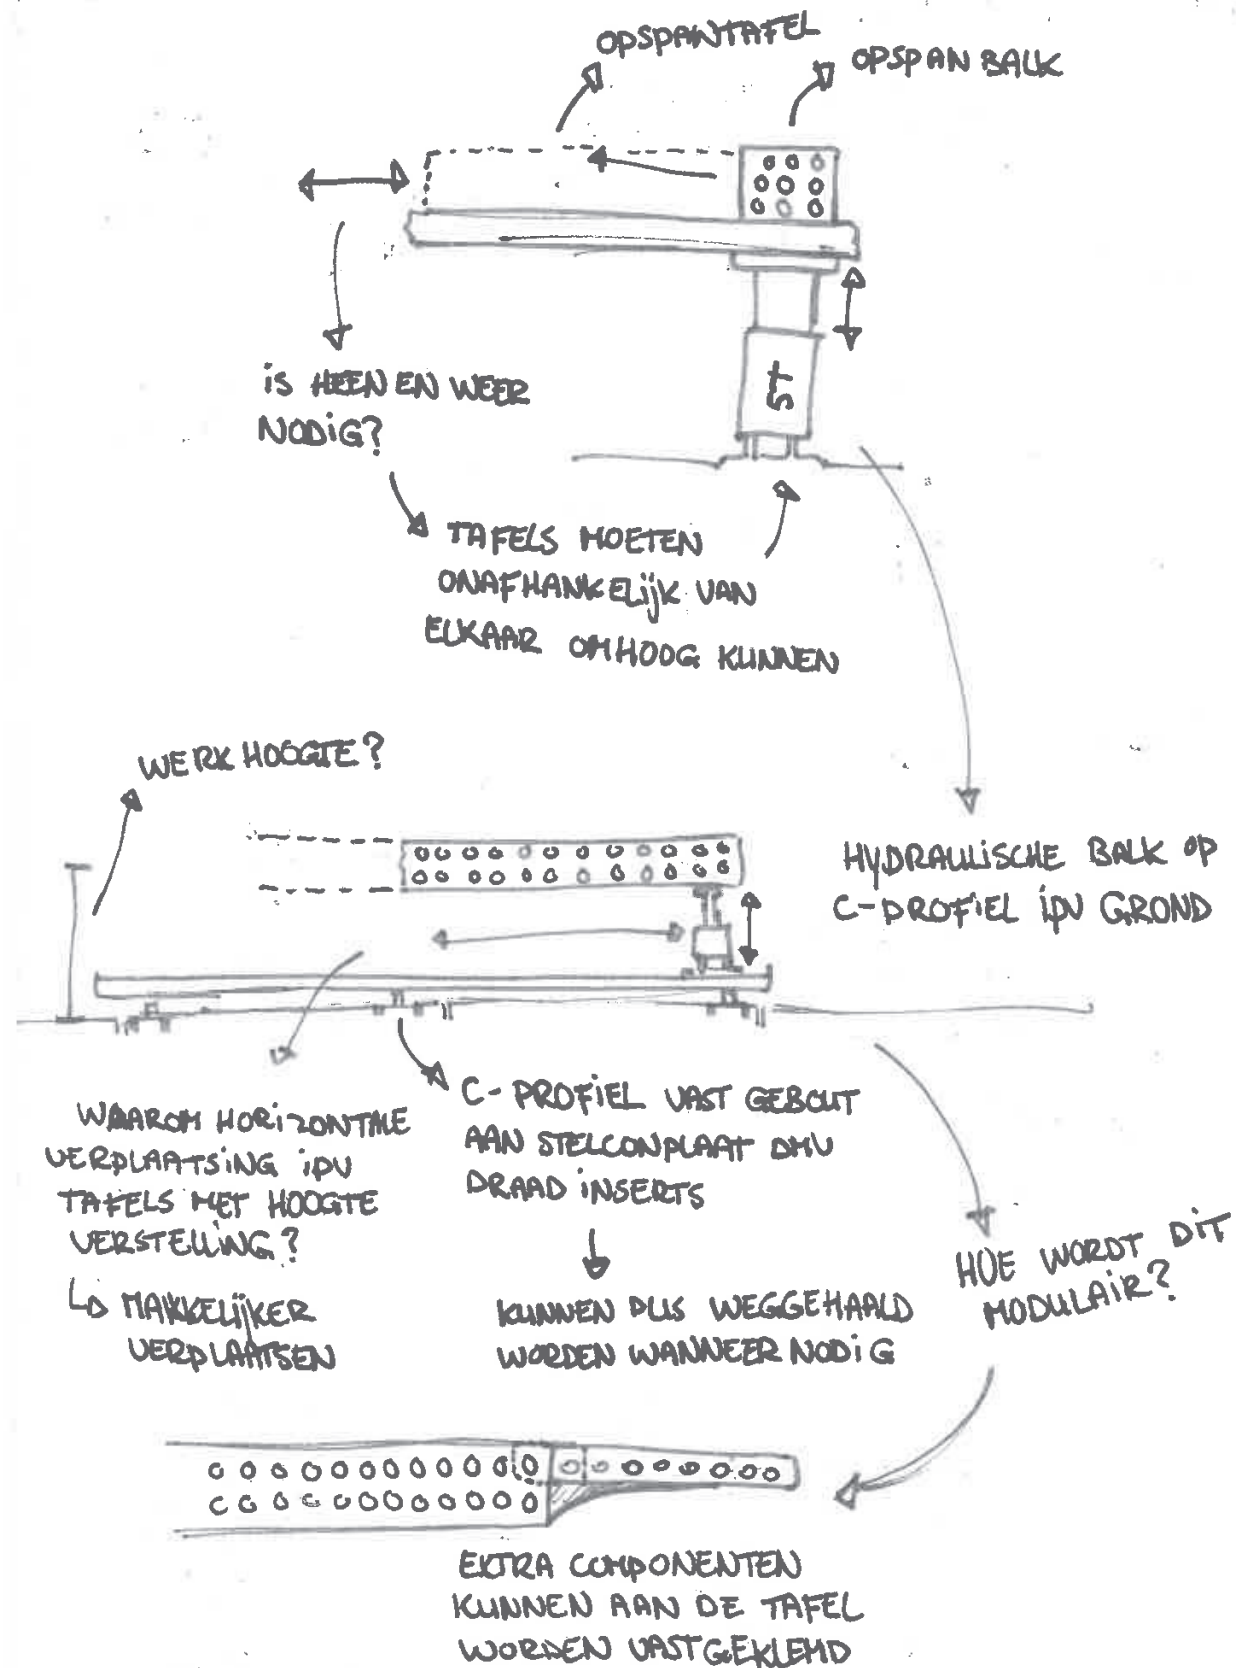 OPSPANTAFEL
OPSPANBALK
5T
iS HEEN EN WEER
NODiG?
TAFELS MOETEN
ONAFHANKELijK VAN
ELKAAR OMHOOG KUNNEN
WERKHOOGTE?
HYDRAULISCHE BALK OP
C-PROFiEL ipv GROND
WAAROM HORiZONTALE
VERPLAATSiNG ipv
TAFELS MET HOOGTE
VERSTELLiNG?
MAKKELijKER
VERPLAATSEN
C-PROFiEL VAST GEBOUT
AAN STELCONPLAAT DMV
DRAAD iNSERTS
KUNNEN DUS WEGGEHAALD
WORDEN WANNEER NODiG
HOE WORDT DiT
MODULAiR?
EXTRA COMPONENTEN
KUNNEN AAN DE TAFEL
WORDEN VASTGEKLEMD